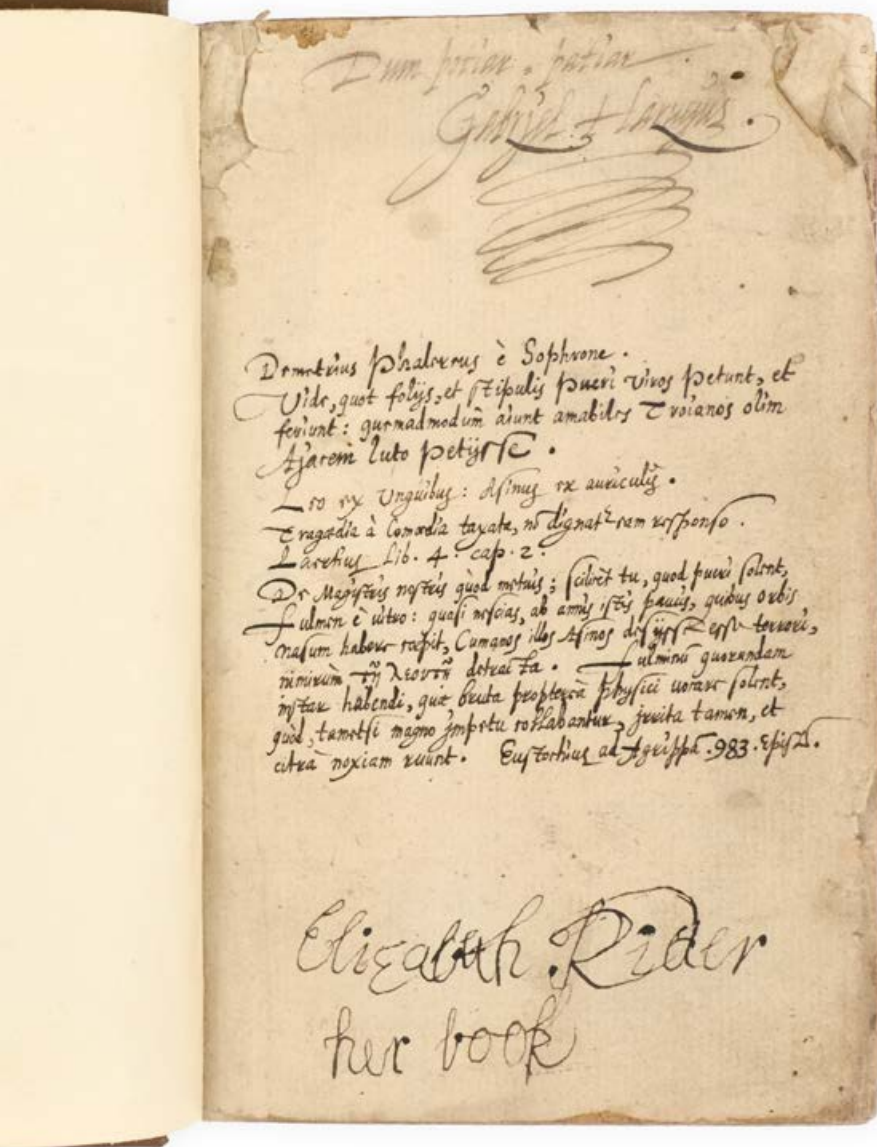 Dum potiar, patiar.
Gabriel Harveyus.
Demetrius Phalereus è Sophrone.
Vide, quot folijs, et stipulis pueri viros petunt, et
feriunt: quemadmodùm aiunt amabiles Troianos olim
Ajacem luto petijsse.
Leo ex Unguibus: Asinus ex auriculis.
Tragœdia à Comœdia taxata, nõ dignatr eam responso.
Laertius Lib. 4. cap. 2.
De Magistris nostris quòd metuis; scilicet tu, quod pueri solent,
fulmen è vitro: quasi nescias, ab annis istis paucis, quibus orbis
nasum habere cœpit, Cumanos illos Asinos desijsse esse terrori,
nimirùm τῆ λεοντῆ detracta. Fulminũ quorundam
instar habendi, quæ bruta proptereà Physici vocare solent,
quòd, tametsi magno jmpetu collabantur, jrrita tamen, et
citrà noxiam ruunt. Eustochius ad Agrippã. 983. Epist.
Elizabeth Rider
her book